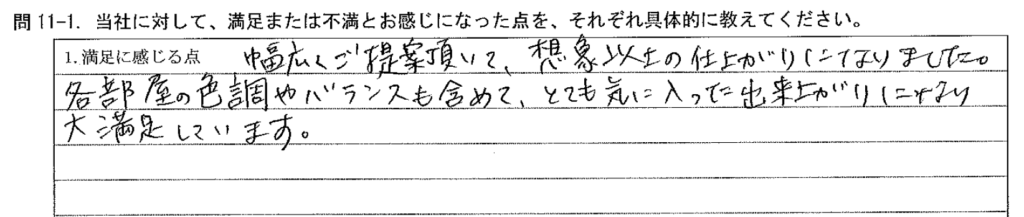 問 11-1. 当社に対して、満足または不満とお感じになった点を、それぞれ具体的に教えてください。
1. 満足に感じる点 幅広くご提案頂いて、想象以上の仕上がりになりました。
各部屋の色調やバランスも含めて、とても気に入った出来上がりになり
大満足しています。